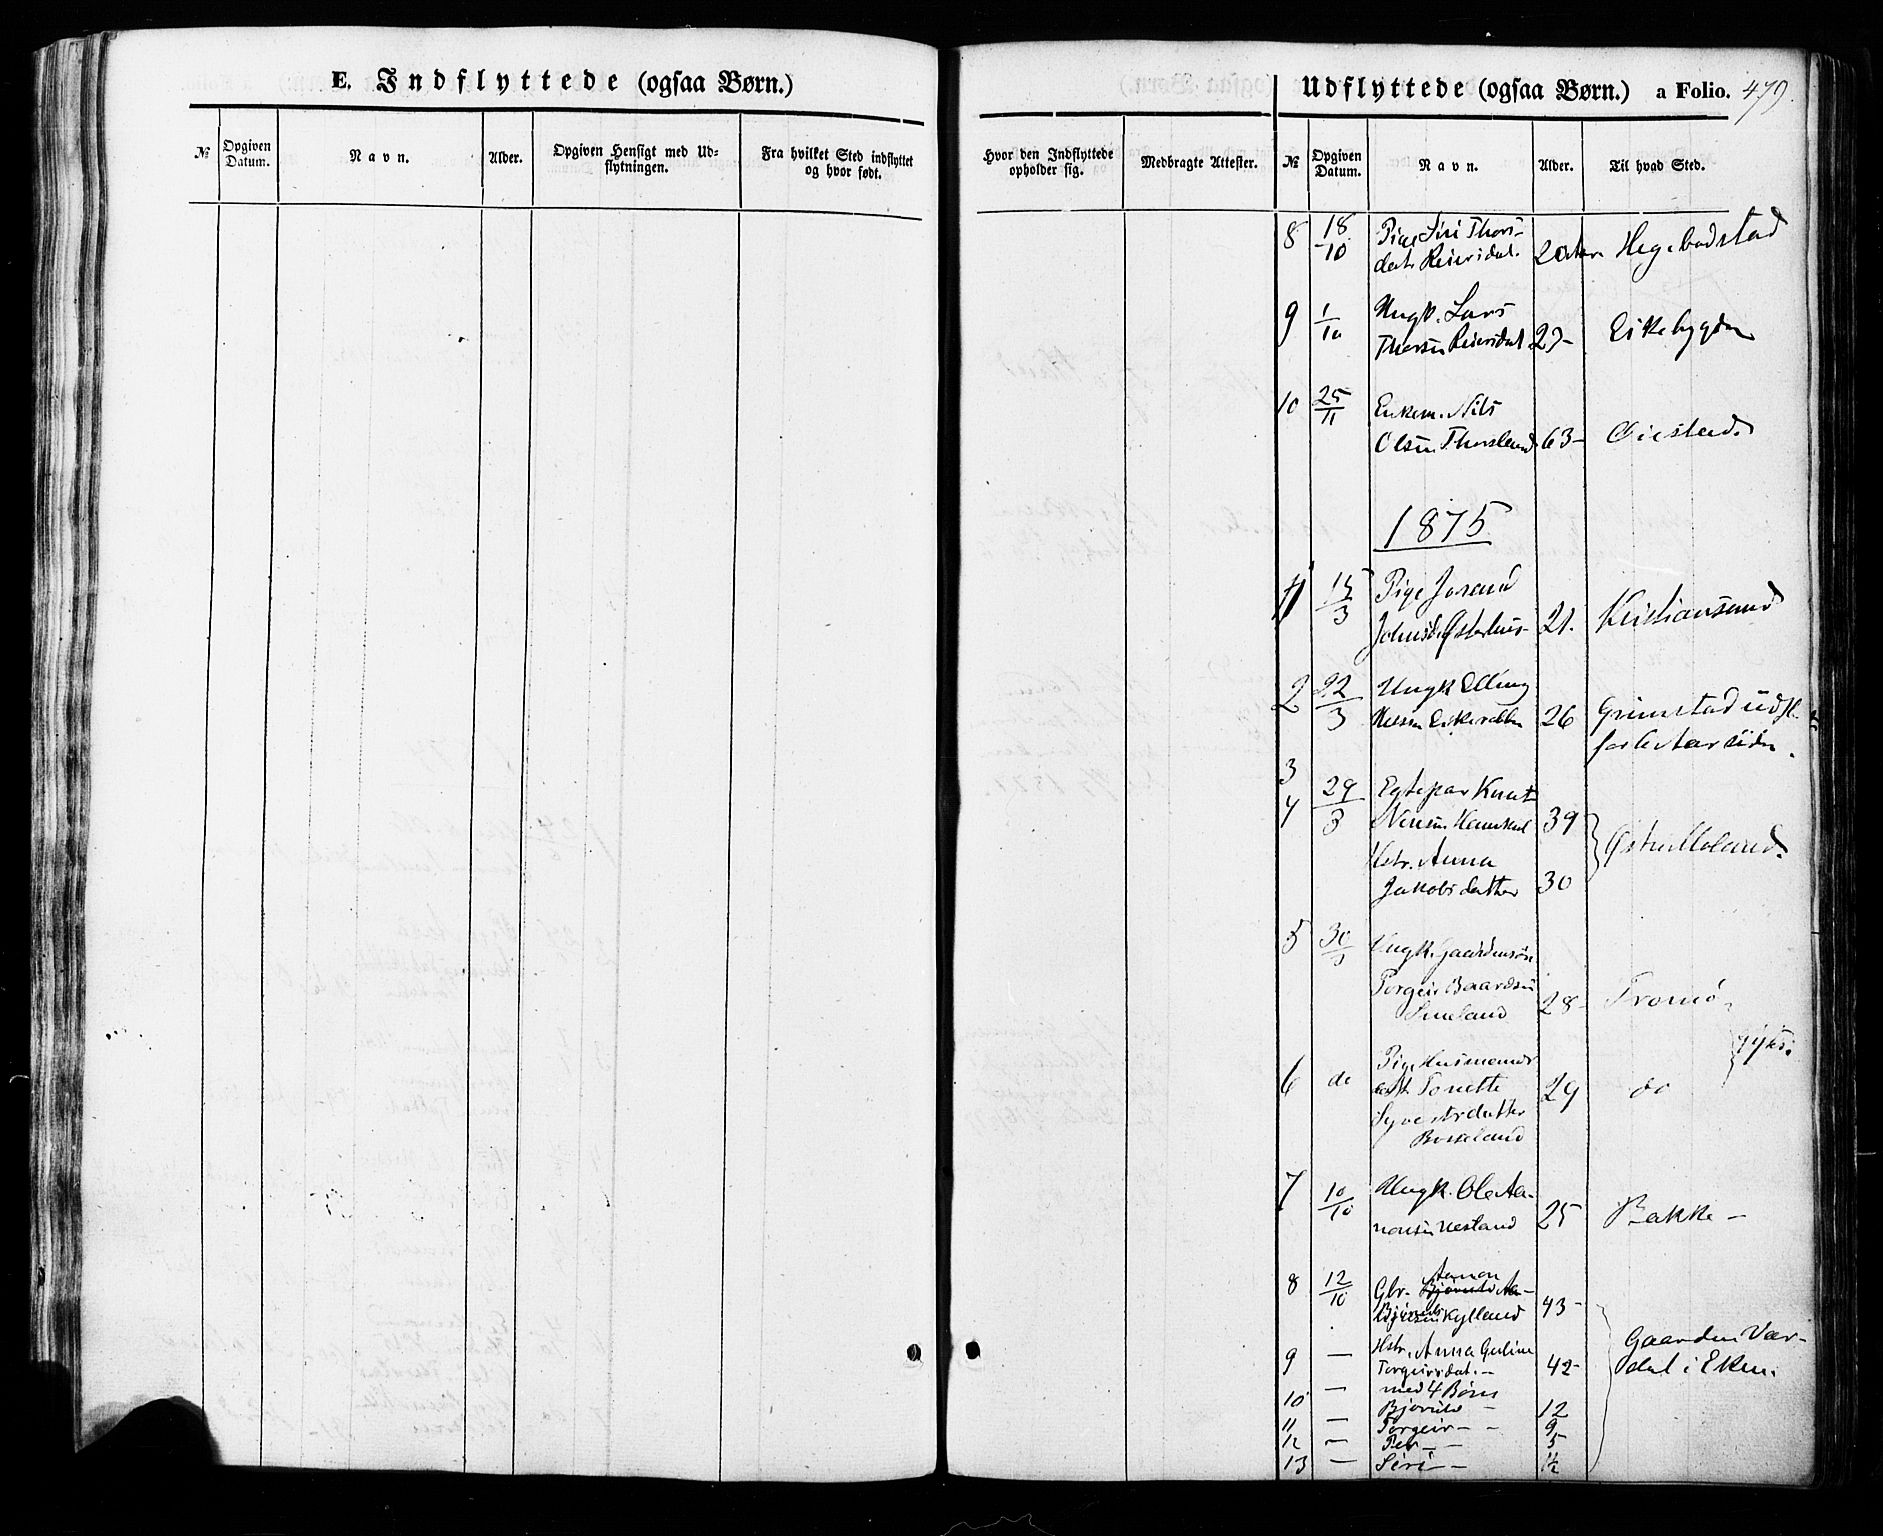 E. Indflyttede (ogsaa Børn.)
№ Opgiven Datum. Navn. Alder. Opgiven Hensigt med Udflytningen. Fra hvilket Sted indflyttet og hvor født.
Hvor den Indflyttede opholder sig. Medbragte Attester.
Udflyttede (ogsaa Børn.) a Folio. 479.
№ Opgiven Datum. Navn. Alder. Til hvad Sted.
8 18/10 Pige Siri Thors-
dat. Reiersdal. 20 Hegebostad
9 1/10 Ungk. Lars
Thorsen Reiersdal 23- Eikebygden
10 25/11 Enkem. Nils
Olsen Thorsland 63- Øiestad.
1875
1 15/3 Pige Jorand
Johnsd. Østerhus 21. Kristiansand
2 22/3 Ungk Elling
26 Grimstad udfl.
3
4 29/3 Egtepar Knut
39
Hstr. Anna
Jakobsdatter 30 Østre Moland.
5 30/3 Ungk. Gaardmsøn
Torgeir Baardsen
28- Tromø
6 do Pige Husmands
Tonette
Syvertsdatter 29 do
7 10/10 Ungk. Ole Aa-
nonsen 25 Bakke-
8 12/10 Gbr. Aanon
Kylland 43-
9 — Hstr. Anna Guline
Torgeirsdat. 42- Gaarden Var-
dal i Eken.
10 — med 4 Børn
12
11 — Torgeir - - 9
12 — Per - - 5
13 — Siri - 1½